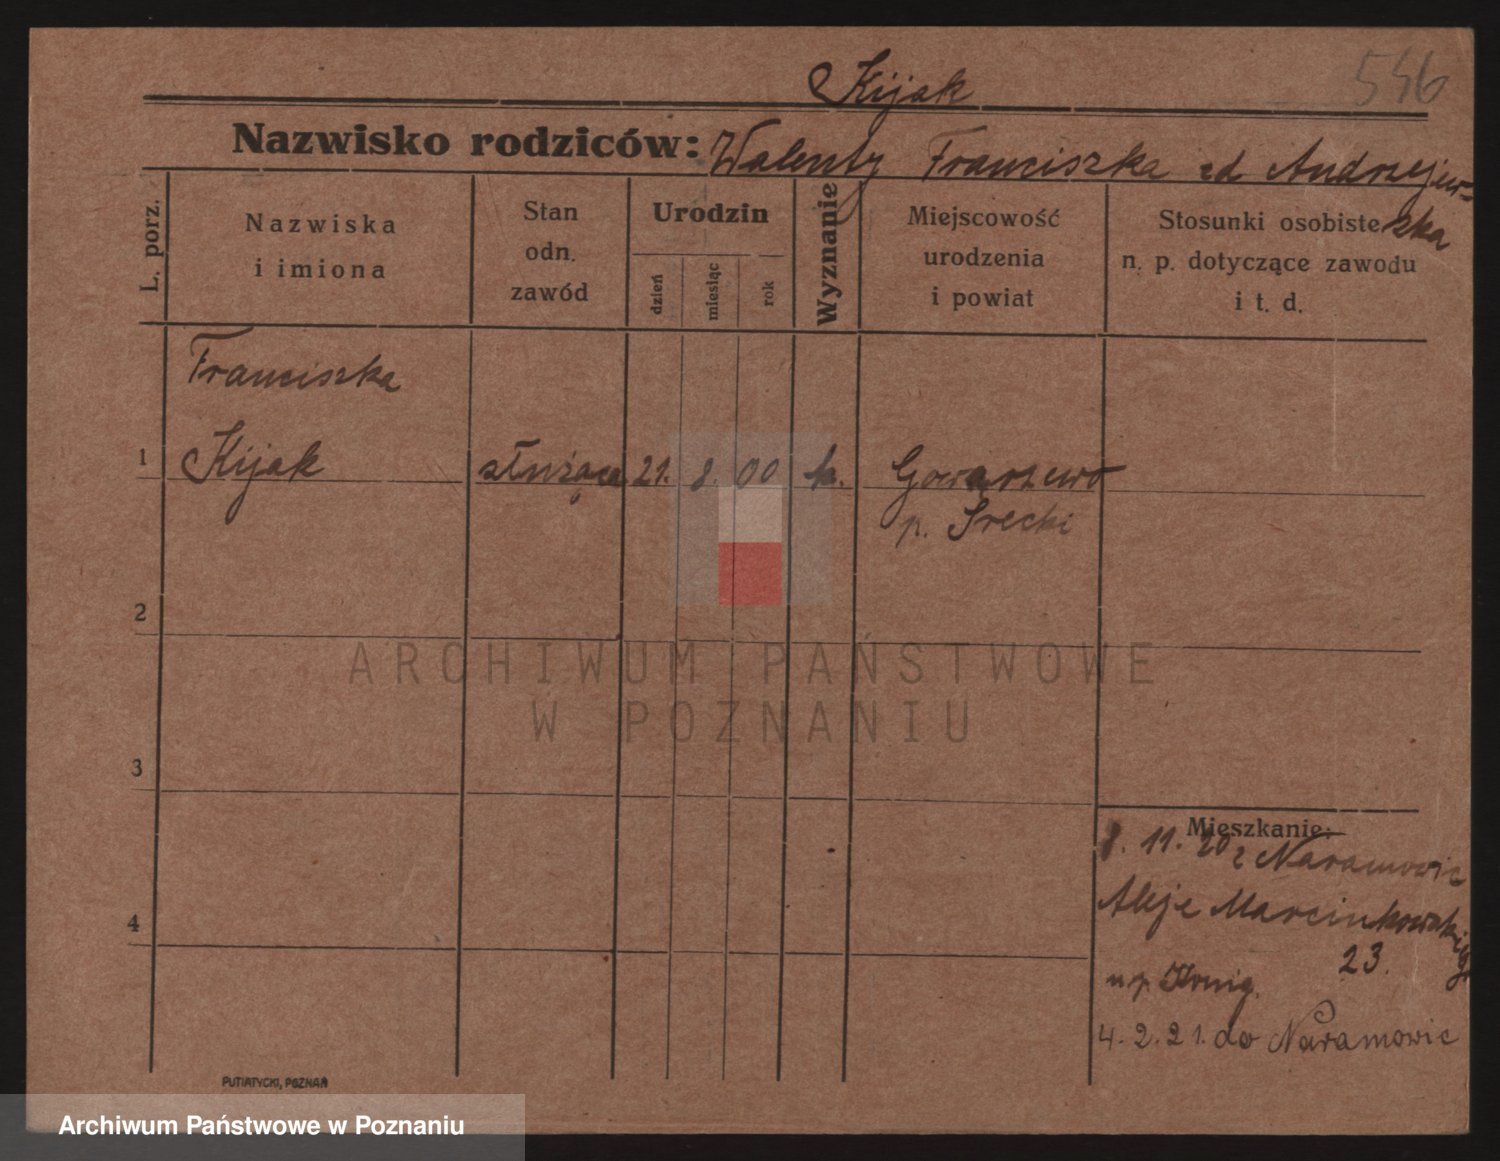 Kijak
546
Nazwisko rodziców: Walenty Franciszka zd Andrzejew-
ska
L. porz.
Nazwiska
i imiona
Stan
odn.
zawód
Urodzin
dzień
miesiąc
rok
Wyznanie
Miejscowość
urodzenia
i powiat
Stosunki osobiste
n. p. dotyczące zawodu
i t. d.
Franciszka
1 Kijak służąca 21. 8. 00 k. Gowarzewo
p. Śrecki
2
ARCHIWUM PAŃSTWOWE
W POZNANIU
3
Mieszkanie:
8. 11. 20 z Naramowic
Aleje Marcinkowskiego
4
23.
u p. König.
4. 2. 21. do Naramowic
PUTIATYCKI, POZNAŃ
Archiwum Państwowe w Poznaniu